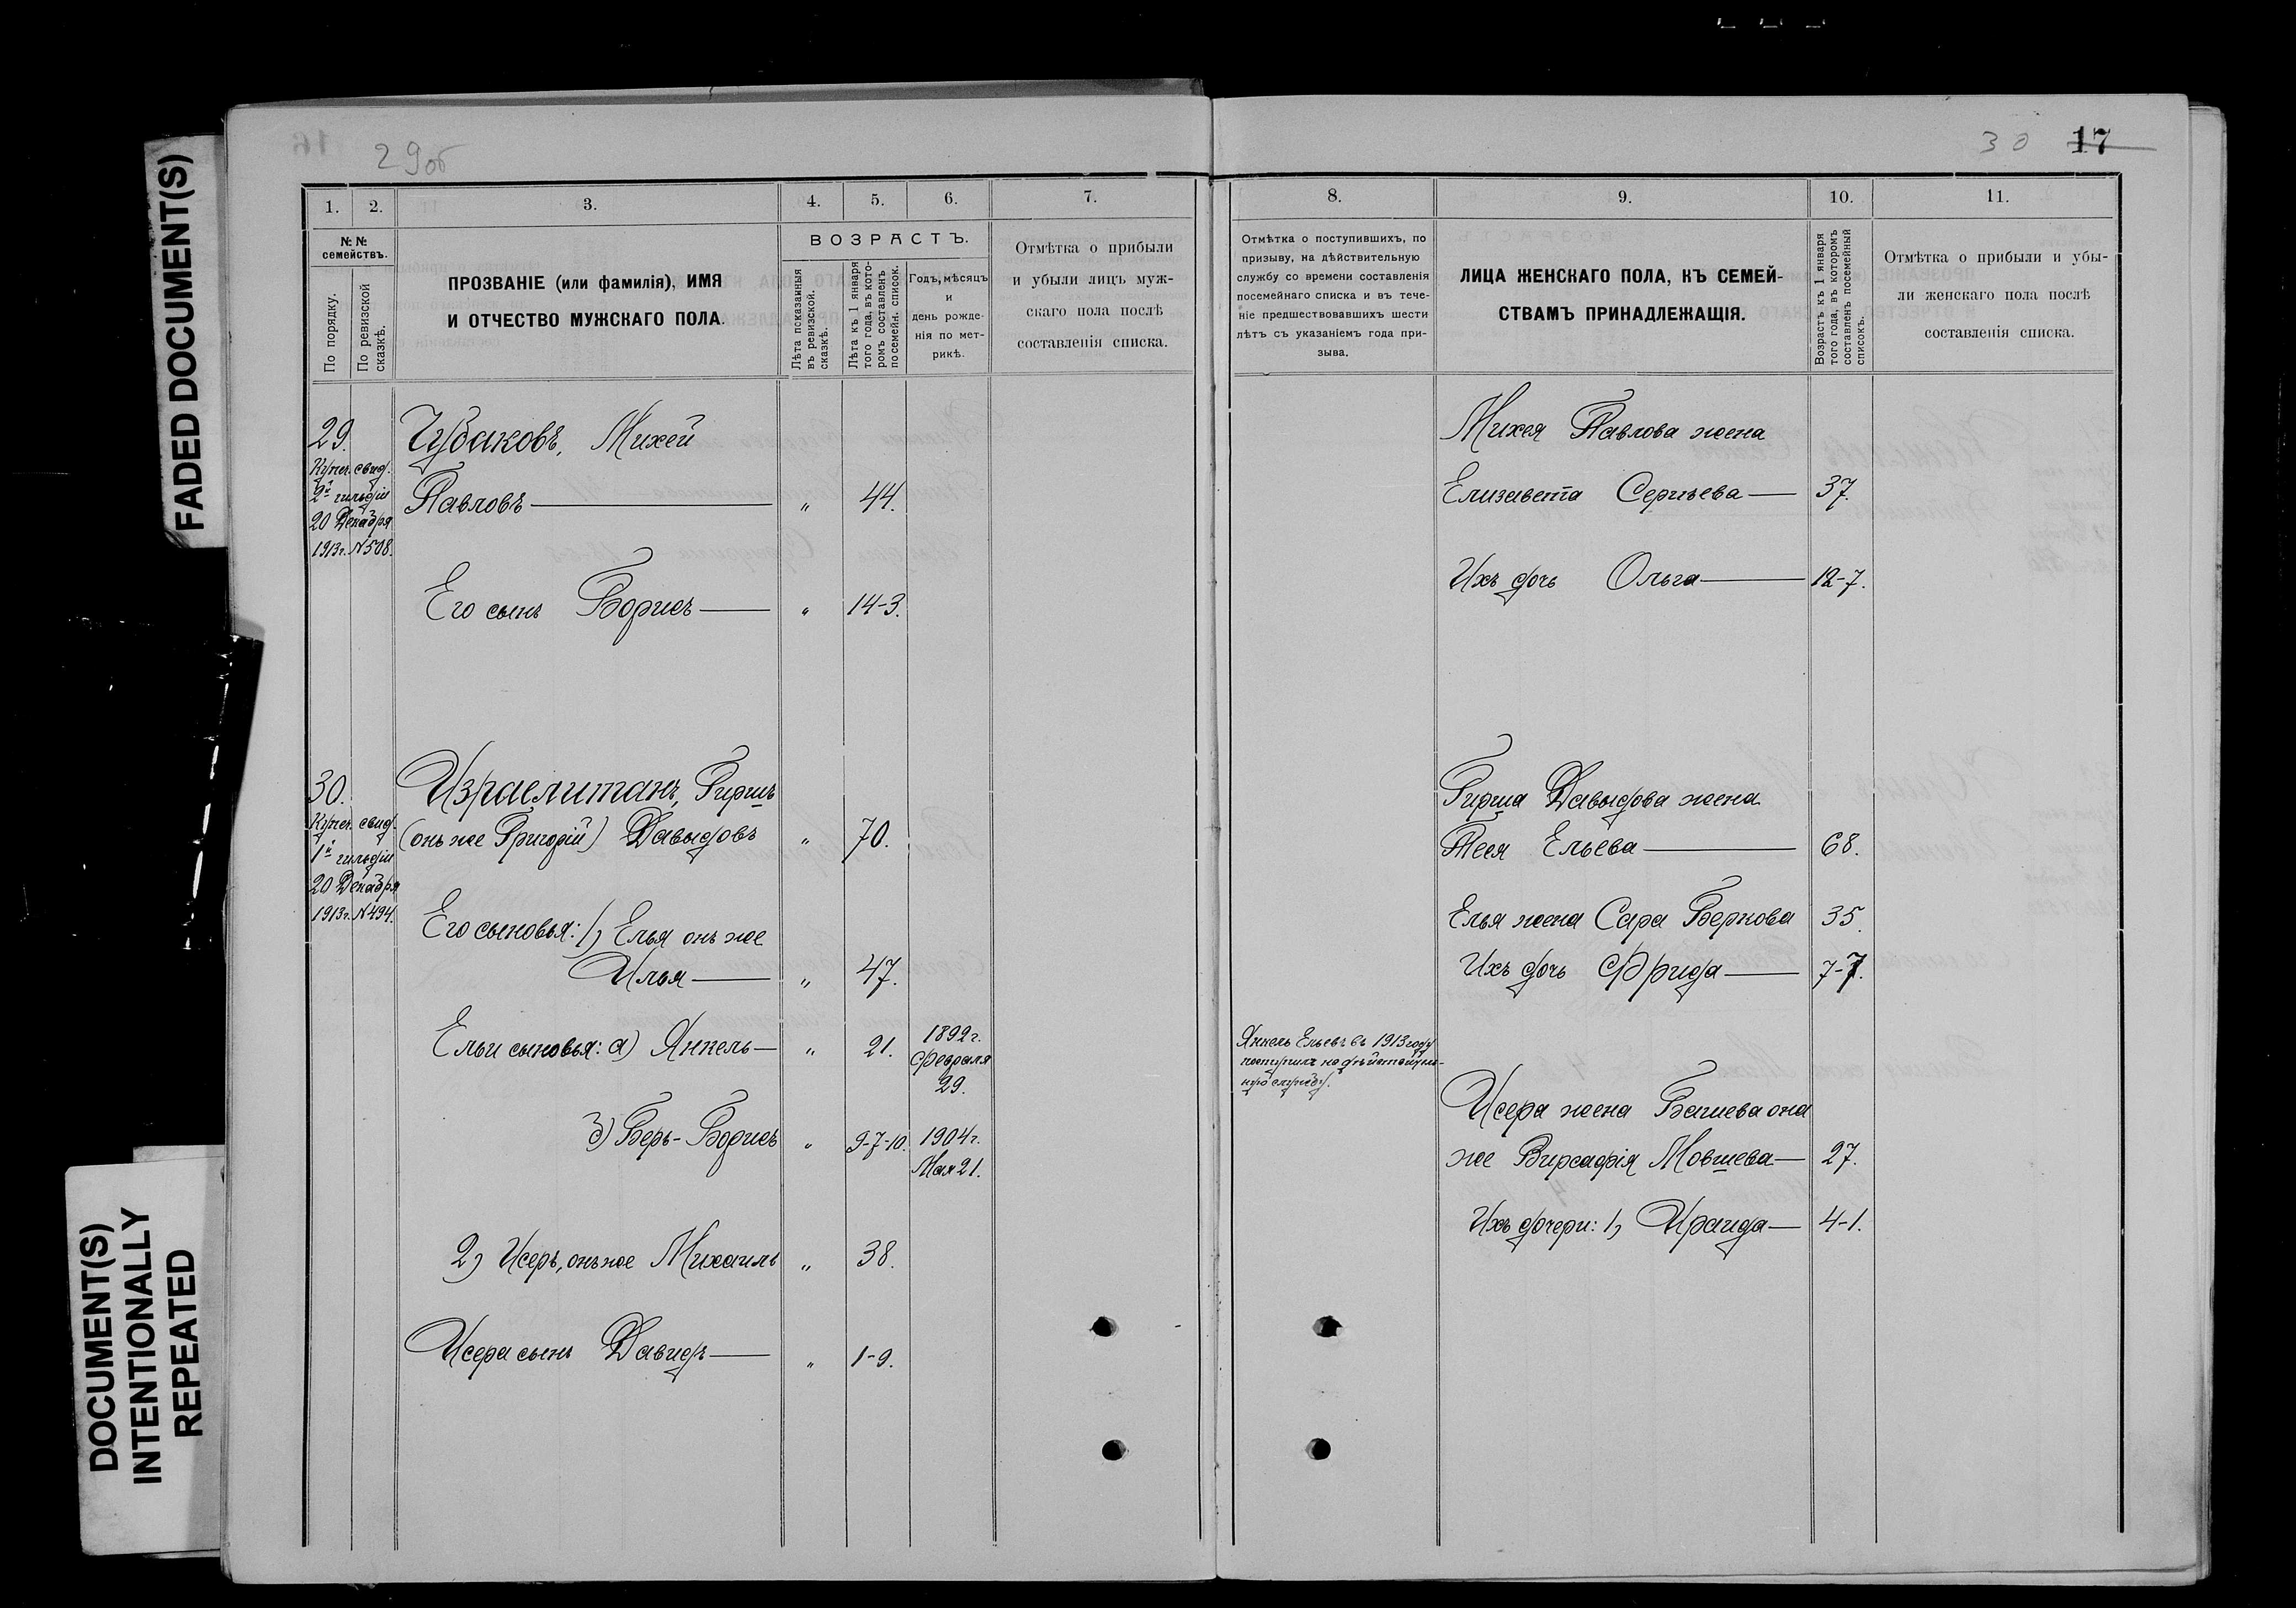 FADED DOCUMENT(S)
DOCUMENT(S)
INTENTIONALLY
REPEATED
29об
1.
2.
3.
4.
5.
6.
7.
№ №
семействъ.
По порядку.
По ревизской
сказкѣ.
ПРОЗВАНІЕ (или фамилія), ИМЯ
И ОТЧЕСТВО МУЖСКАГО ПОЛА.
ВОЗРАСТЪ.
Лѣта показанныя
въ ревизской.
сказкѣ.
Лѣта къ 1 января
того года, въ кото-
ромъ составленъ
посемейн. список.
Годъ, мѣсяцъ
и
день рожде-
нія по мет-
рикѣ.
Отмѣтка о прибыли
и убыли лицъ муж-
скаго пола послѣ
составленія списка.
29.
Купеч. свид.
2й гильдіи
20 Декабря
1913г. №508.
Чубаковъ, Михей
Павловъ — „ 44.
Его сынъ Борисъ — „ 14-3.
30.
Купеч. свид.
1й гильдіи
20 Декабря
1913г. №494.
Израелитанъ, Гиршъ
(онъ же Григорій) Давыдовъ „ 70.
Его сыновья: 1) Елья онъ же
Илья — „ 47.
Ельи сыновья: а) Янкель — „ 21. 1892г.
Февраля
29.
б) Беръ-Борисъ „ 9-7-10. 1904г.
Мая 21.
2) Исеръ, онъ же Михаилъ „ 38.
Исера сынъ Давидъ — „ 1-9.
30 17
8.
9.
10.
11.
Отмѣтка о поступившихъ, по
призыву, на дѣйствительную
службу со времени составленія
посемейнаго списка и въ тече-
ніе предшествовавшихъ шести
лѣтъ съ указаніемъ года при-
зыва.
ЛИЦА ЖЕНСКАГО ПОЛА, КЪ СЕМЕЙ-
СТВАМЪ ПРИНАДЛЕЖАЩІЯ.
Возрастъ къ 1 января
того года, въ которомъ
составленъ посемейный
списокъ.
Отмѣтка о прибыли и убы-
ли женскаго пола послѣ
составленія списка.
Михея Павлова жена
Елизавета Сергѣева — 37.
Ихъ дочь Ольга — 12-7.
Гирша Давыдова жена
Песя Ельева — 68.
Елья жена Сара Бернова 35.
Ихъ дочь Фрида — 7-7.
Янкель Ельевъ въ 1913 году
поступилъ на дѣйствитель-
ную службу.
Исера жена Башева она
же Вирсафія Мовшева — 27.
Ихъ дочери: 1) Ираида — 4-1.